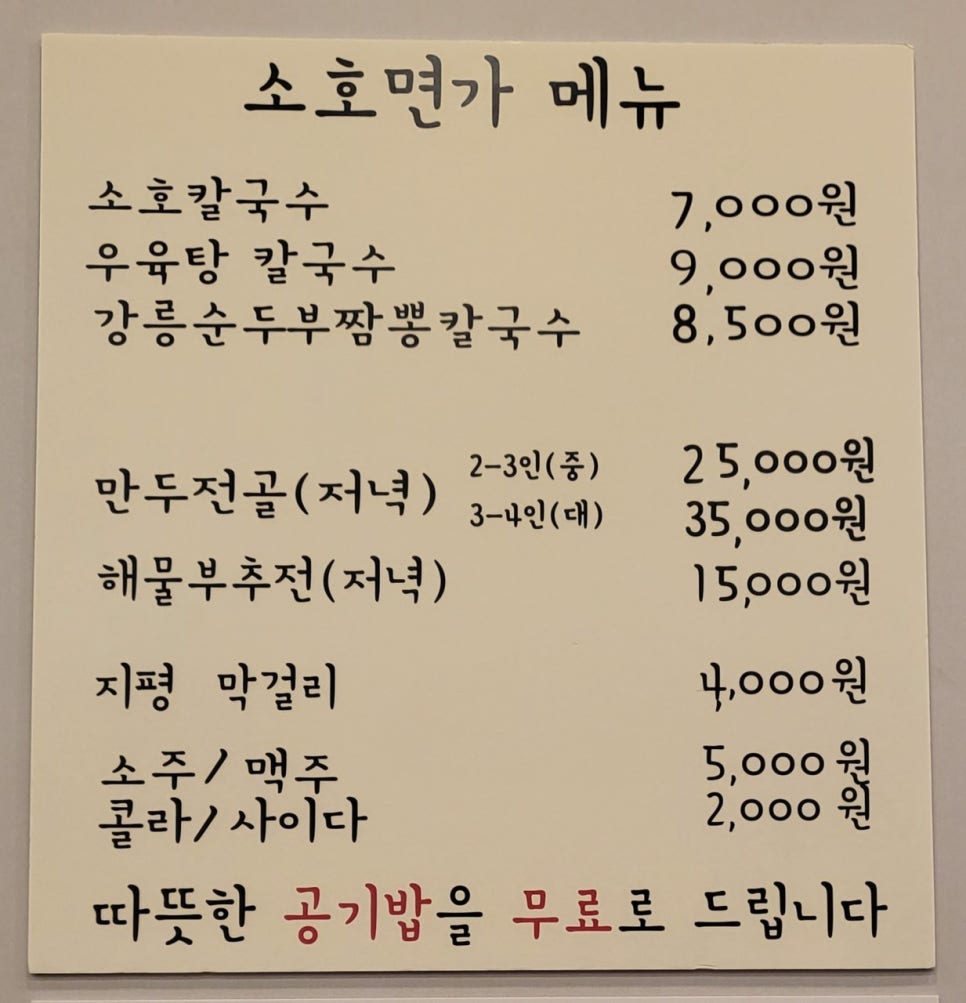 소호면가 메뉴
소호칼국수 7,000원
우육탕 칼국수 9,000원
강릉순두부짬뽕칼국수 8,500원
만두전골(저녁) 2-3인(중) 25,000원
3-4인(대) 35,000원
해물부추전(저녁) 15,000원
지평 막걸리 4,000원
소주/맥주 5,000원
콜라/사이다 2,000원
따뜻한 공기밥을 무료로 드립니다